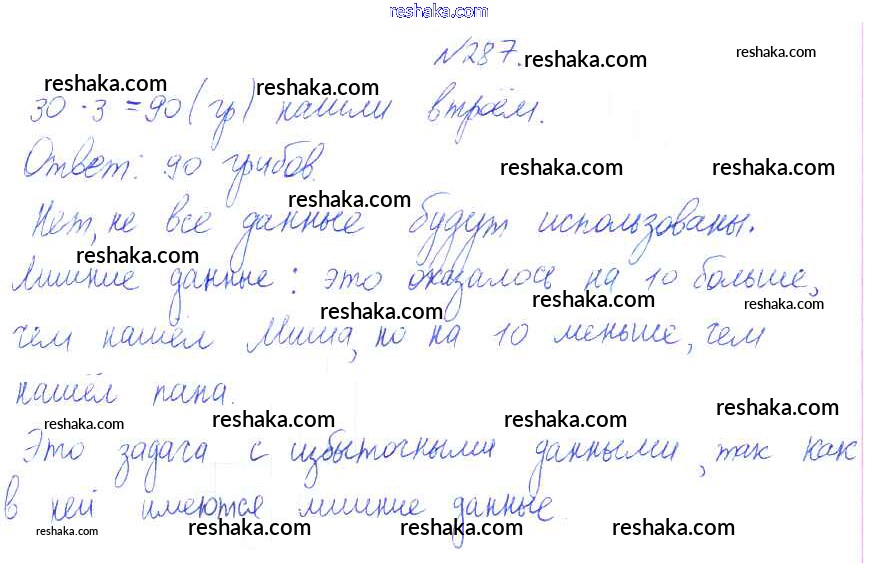 reshaka.com
№287. reshaka.com reshaka.com
reshaka.com reshaka.com reshaka.com
30 · 3 = 90 (гр) нашли втроём.
Ответ: 90 грибов. reshaka.com reshaka.com
reshaka.com
Нет, не все данные будут использованы.
reshaka.com reshaka.com
Лишние данные: это оказалось на 10 больше,
reshaka.com reshaka.com reshaka.com
чем нашёл Миша, но на 10 меньше, чем
нашёл папа.
reshaka.com reshaka.com reshaka.com reshaka.com
Это задача с избыточными данными, так как
в ней имеются лишние данные
reshaka.com reshaka.com reshaka.com reshaka.com